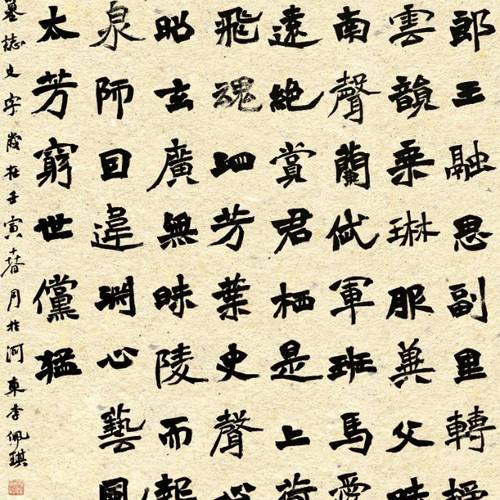 郎王融思副里轉
雲韻乘琳服冀父昧
南聲蘭弑軍班馬
遠絶賞君栖是上
飛魂四芳葉史聲
昭玄廣無昧陵而報
泉師回違淵心藝風
太芳窮世儻猛
墓誌文字歲在壬寅春月於河東李佩琪